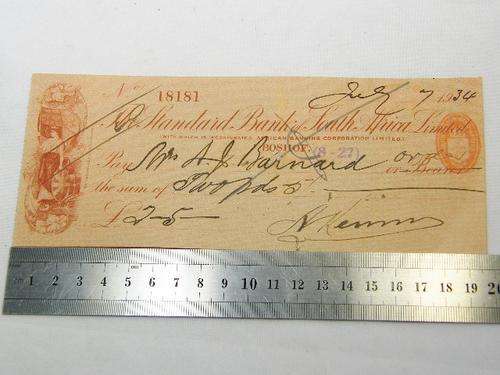 No 18181 July 7 1934
The Standard Bank of South Africa Limited
(WITH WHICH IS INCORPORATED AFRICAN BANKING CORPORATION LIMITED)
BOSHOF.
Pay Mrs A. J. Barnard or Bearer
the sum of Two pds 5
£ 2-5-
cm 1 2 3 4 5 6 7 8 9 10 11 12 13 14 15 16 17 18 19 20